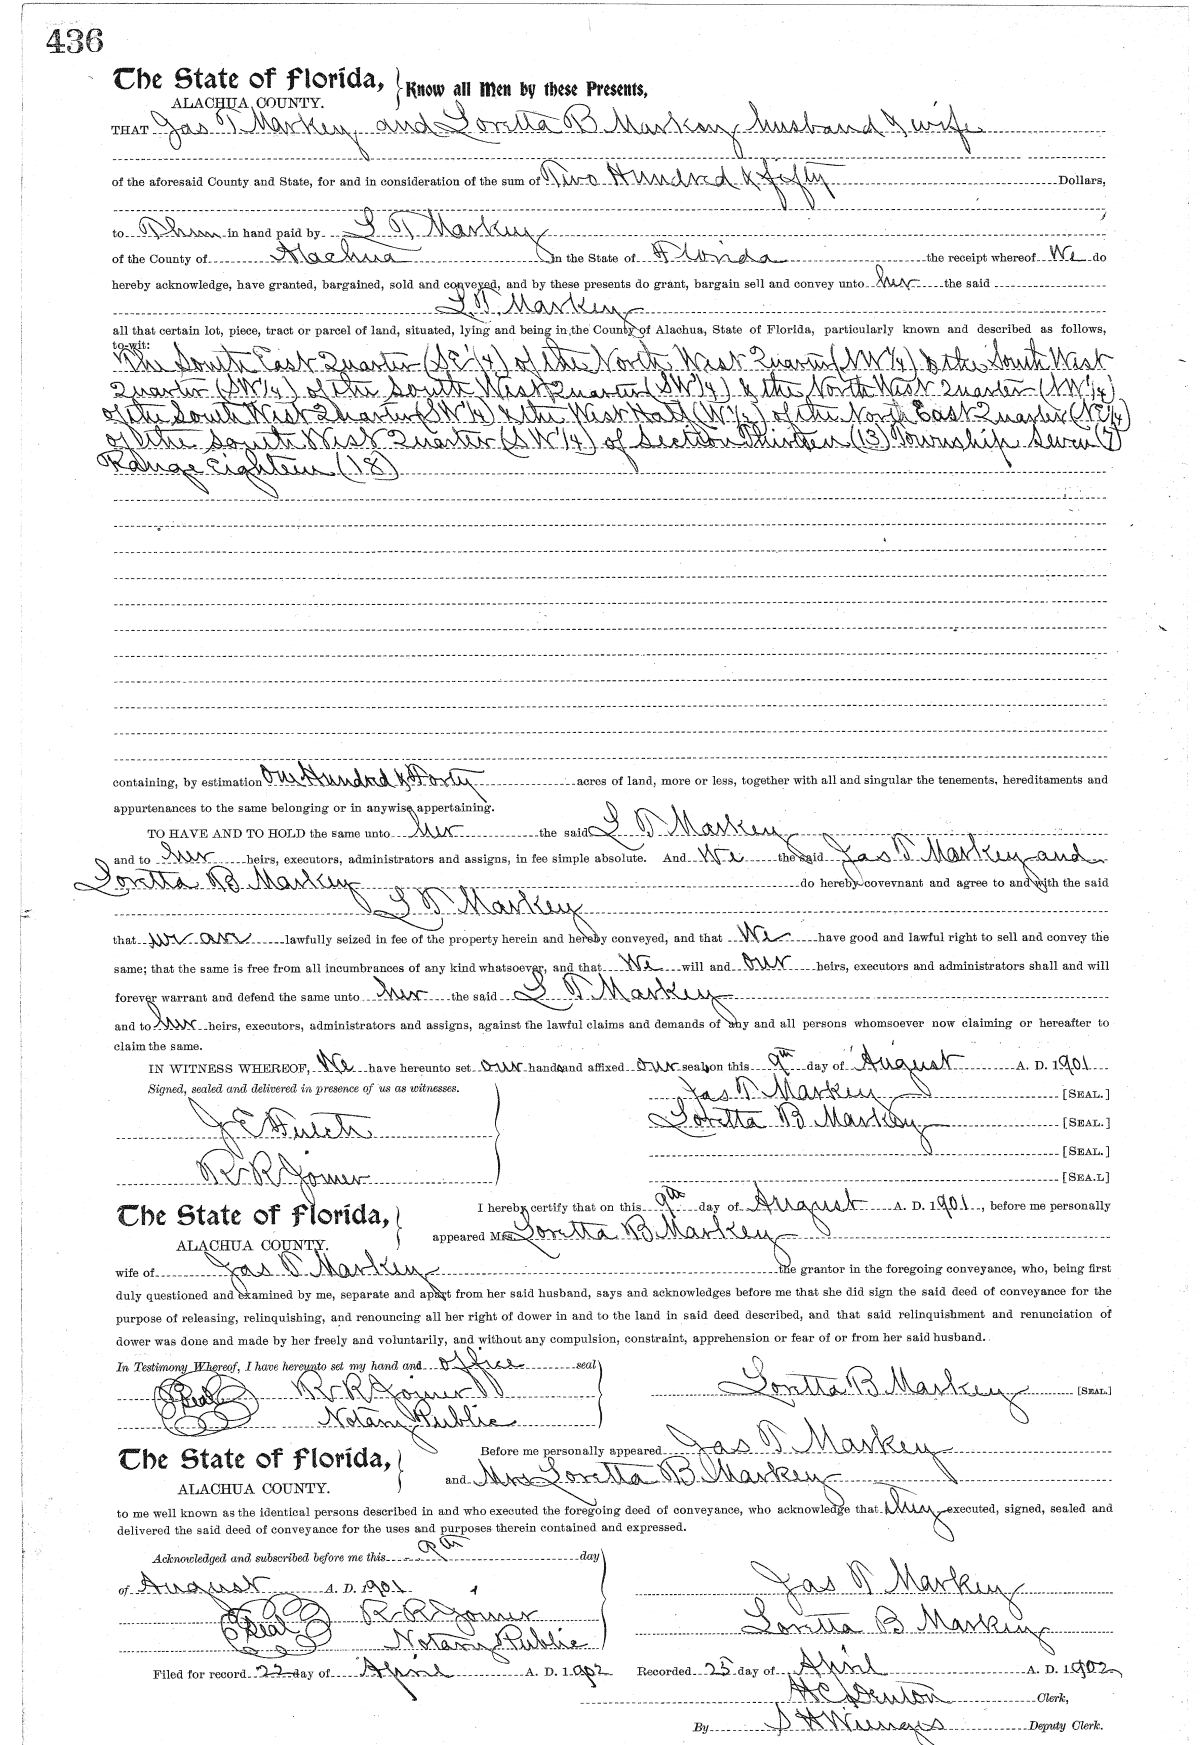 436
The State of Florida, Know all Men by these Presents,
ALACHUA COUNTY.
THAT Jas T Markey and Loretta B Markey husband & wife
of the aforesaid County and State, for and in consideration of the sum of Two Hundred & fifty Dollars,
to Them in hand paid by L T Markey
of the County of Alachua in the State of Florida the receipt whereof We do
hereby acknowledge, have granted, bargained, sold and conveyed, and by these presents do grant, bargain sell and convey unto her the said
L. T. Markey
all that certain lot, piece, tract or parcel of land, situated, lying and being in the County of Alachua, State of Florida, particularly known and described as follows,
to-wit:
The South East Quarter (SE 1/4) of the North West Quarter (NW 1/4) & the South West
Quarter (SW 1/4) of the South West Quarter (SW 1/4) & the North West Quarter (NW 1/4)
of the South West Quarter (SW 1/4) & the West Half (W 1/2) of the North East Quarter (NE 1/4)
of the South West Quarter (SW 1/4) of Section Thirteen (13) Township Seven (7)
Range Eighteen (18)
containing, by estimation One Hundred & Forty acres of land, more or less, together with all and singular the tenements, hereditaments and
appurtenances to the same belonging or in anywise appertaining.
TO HAVE AND TO HOLD the same unto her the said L T Markey
and to her heirs, executors, administrators and assigns, in fee simple absolute. And We the said Jas T Markey and
Loretta B Markey do hereby covevnant and agree to and with the said
L T Markey
that we are lawfully seized in fee of the property herein and hereby conveyed, and that We have good and lawful right to sell and convey the
same; that the same is free from all incumbrances of any kind whatsoever, and that We will and our heirs, executors and administrators shall and will
forever warrant and defend the same unto her the said L T Markey
and to her heirs, executors, administrators and assigns, against the lawful claims and demands of any and all persons whomsoever now claiming or hereafter to
claim the same.
IN WITNESS WHEREOF, We have hereunto set our hands and affixed our seals on this 9th day of August A. D. 1901
Signed, sealed and delivered in presence of us as witnesses.
Jas T Markey [SEAL.]
J E Futch Loretta B Markey [SEAL.]
[SEAL.]
R R Joiner [SEAL]
The State of Florida, I hereby certify that on this 9th day of August A. D. 1901, before me personally
ALACHUA COUNTY. appeared Mrs Loretta B Markey
wife of Jas T Markey the grantor in the foregoing conveyance, who, being first
duly questioned and examined by me, separate and apart from her said husband, says and acknowledges before me that she did sign the said deed of conveyance for the
purpose of releasing, relinquishing, and renouncing all her right of dower in and to the land in said deed described, and that said relinquishment and renunciation of
dower was done and made by her freely and voluntarily, and without any compulsion, constraint, apprehension or fear of or from her said husband.
In Testimony Whereof, I have hereunto set my hand and office seal
Seal R R Joiner Loretta B Markey [SEAL.]
Notary Public
The State of Florida, Before me personally appeared Jas T Markey
ALACHUA COUNTY. and Mrs Loretta B Markey
to me well known as the identical persons described in and who executed the foregoing deed of conveyance, who acknowledge that they executed, signed, sealed and
delivered the said deed of conveyance for the uses and purposes therein contained and expressed.
Acknowledged and subscribed before me this 9th day
of August A. D. 1901 Jas T Markey
Seal R R Joiner Loretta B Markey
Notary Public
Filed for record 22 day of April A. D. 1902 Recorded 25 day of April A. D. 1902
H C Denton Clerk,
By S H Wienges Deputy Clerk.